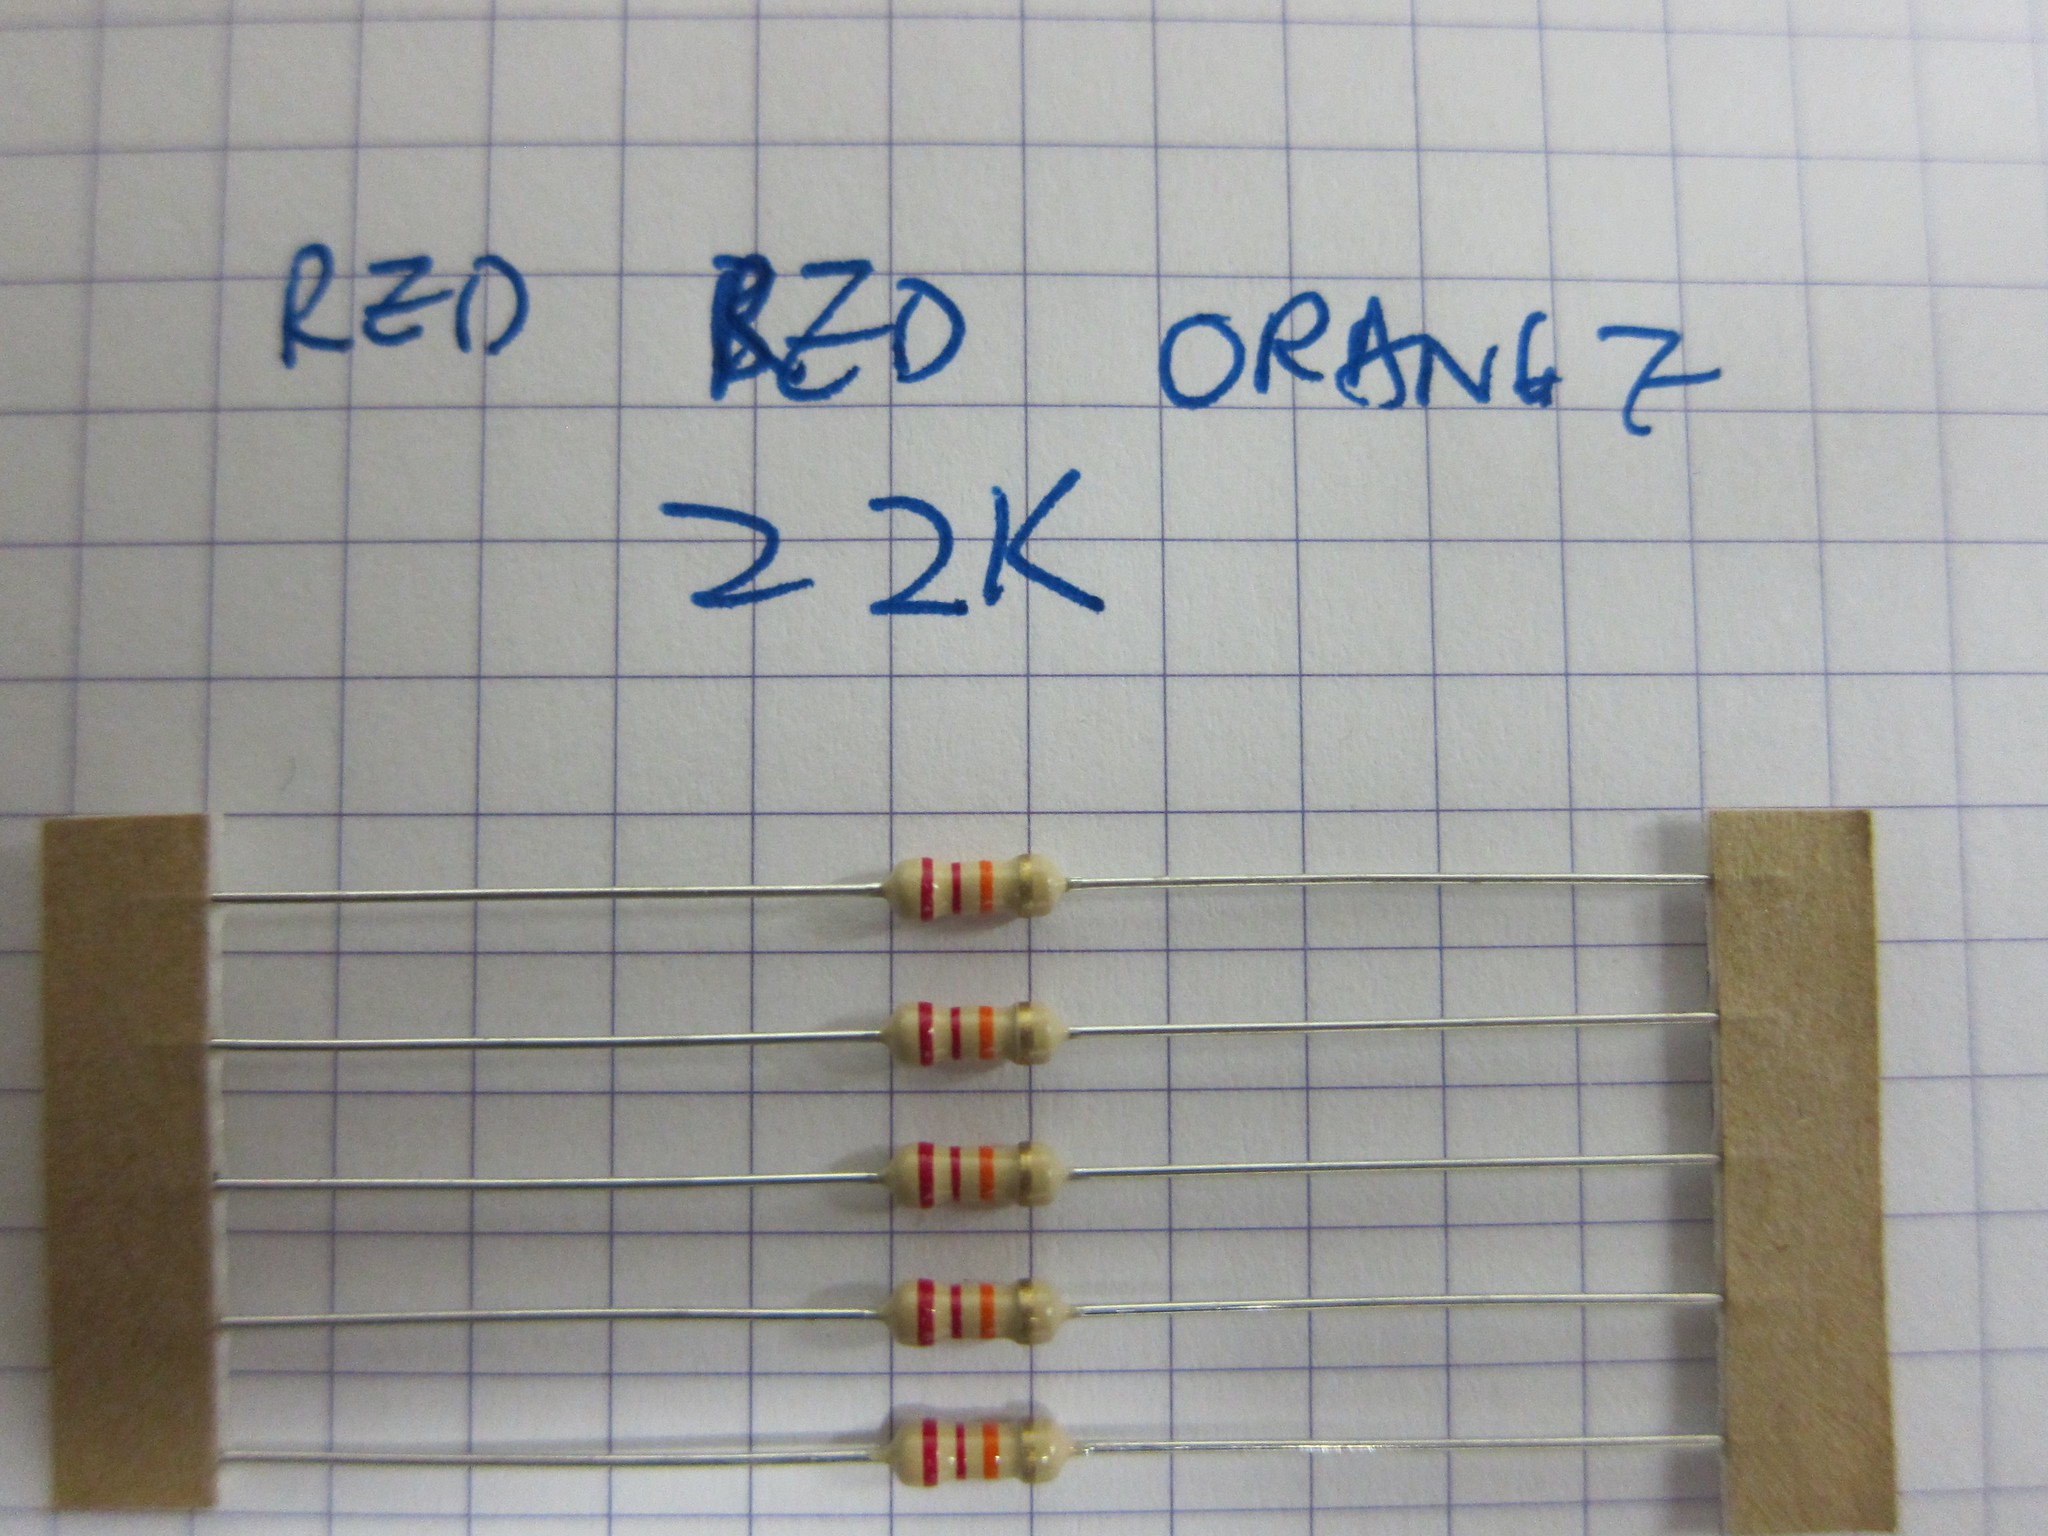 RED RED ORANGE
22K